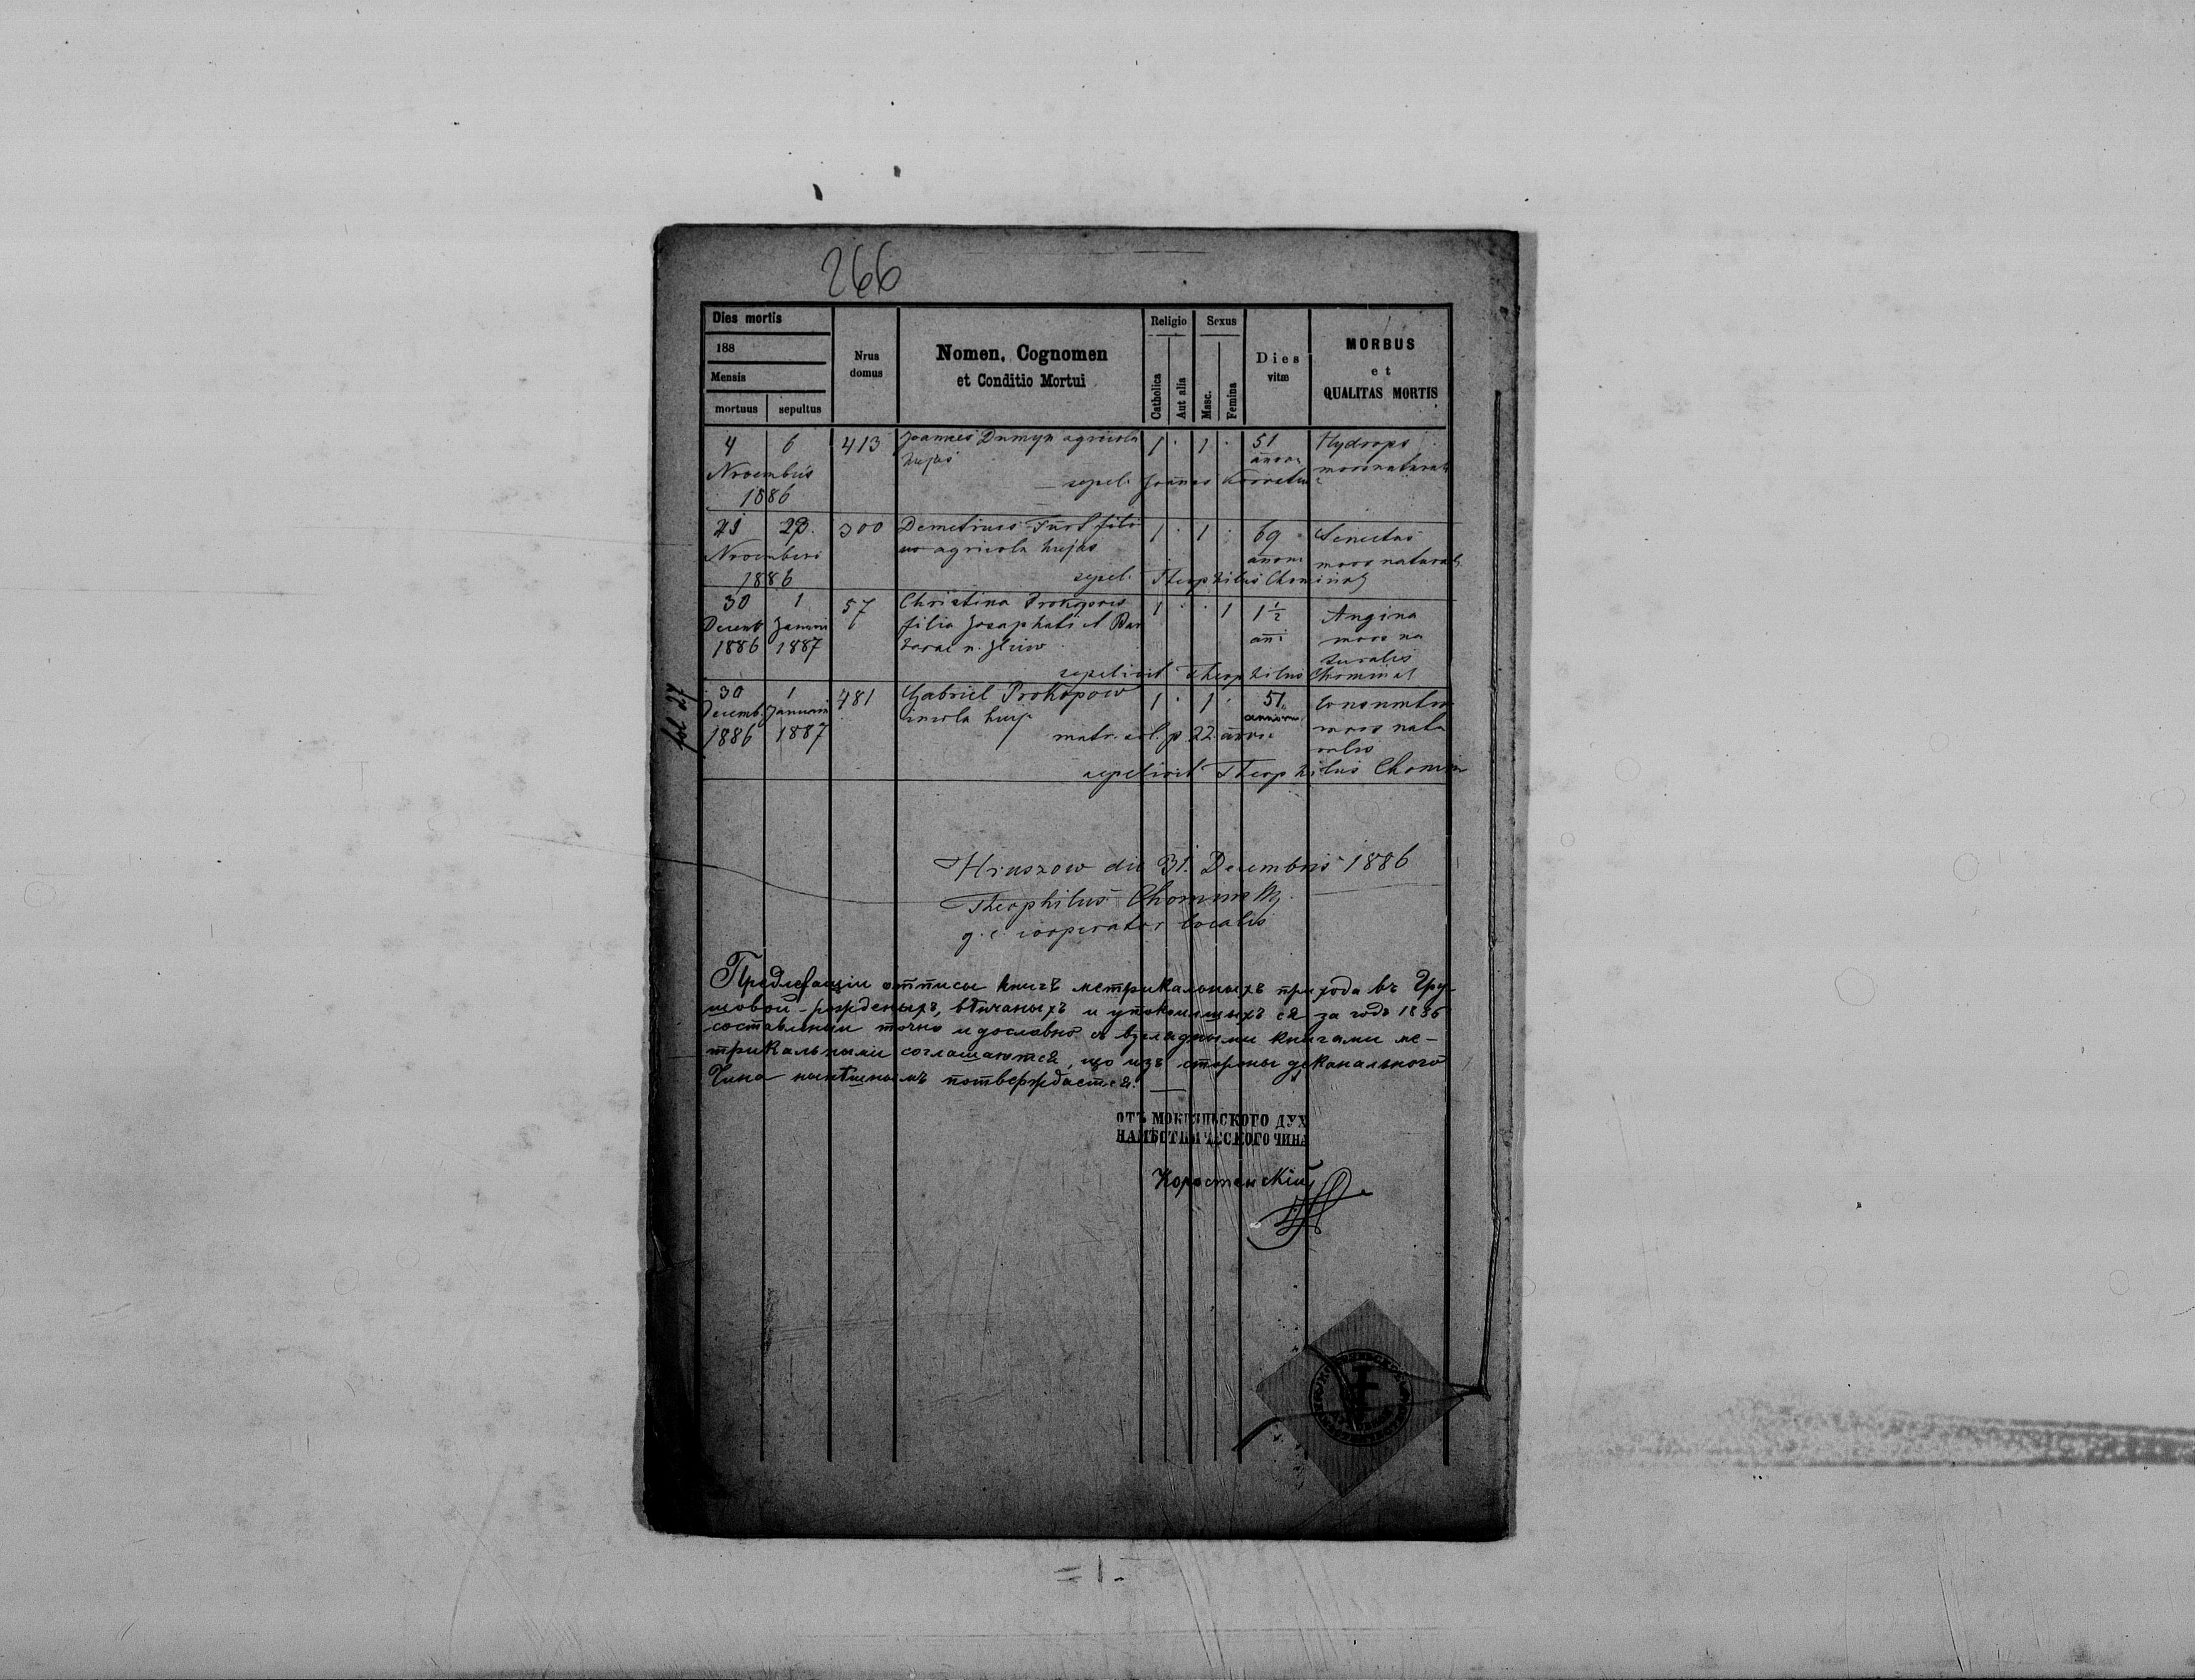 266
Dies mortis
188
Mensis
mortuus sepultus
Nrus
domus
Nomen, Cognomen
et Conditio Mortui
Religio
Catholica
Aut alia
Sexus
Masc.
Femina
Dies
vitæ
MORBUS
et
QUALITAS MORTIS
4 6 413 Joannes Dumyn agricola 1 · 1 · 51 Hydrops
Novembris hujas annor. mors naturalis
1886 sepel. Joannes
21 23. 300 Demetrius fili 1 · 1 · 69 Senectus
Novembris us agricola hujas annor. mors naturalis
1886 sepel. Theophilus Chominskj
30 1 57 Christina Prokopow 1 · · 1 1 1/2 Angina
Decemb Januari filia Josaphati & Bar anni mors na
1886 1887 barae n. turalis
sepelivit Theophilus Chominsk
fol 27
30 1 481 Gabriel Prokopow 1 · 1 · 51 mors natu
Decemb. Januarii incola huj. annorum ralis
1886 1887 matr. p. 22 annor.
sepelivit Theophilus Chomin
Hruszow die 31. Decembris 1886
Theophilus Chominskj
g. c. cooperator localis
Предлежащіи отписы книгъ метрикальныхъ прихода въ Гру-
шовой - рожденыхъ, вѣнчаныхъ и упокоившыхъ ся за годъ 1886
составлении точно и дословно съ взглядными книгами ме-
трикальными соглашаются, що изъ стороны деканального
Чина нынѣшнымъ потверждается.
ОТЪ МОКРЯНЬСКОГО ДУХ
НАМѢСТНИЧЕСКОГО ЧИНА
Коростенскій
= 1 -